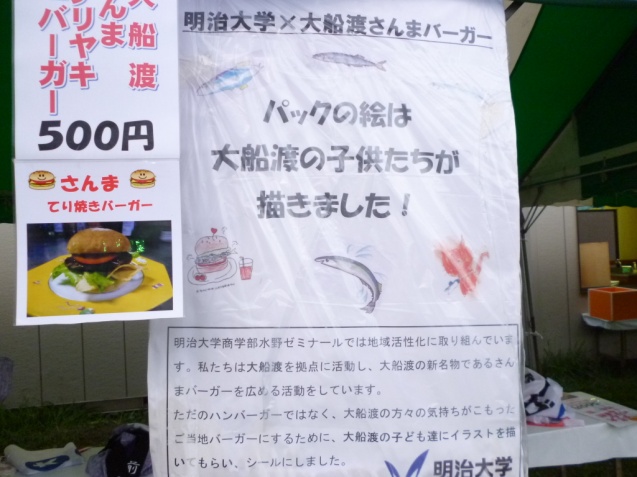 大船渡
さんま
テリヤキ
バーガー
500円
さんま
てり焼きバーガー
明治大学×大船渡さんまバーガー
パックの絵は
大船渡の子供たちが
描きました！
明治大学商学部水野ゼミナールでは地域活性化に取り組んでいま
す。私たちは大船渡を拠点に活動し、大船渡の新名物であるさん
まバーガーを広める活動をしています。
ただのハンバーガーではなく、大船渡の方々の気持ちがこもった
ご当地バーガーにするために、大船渡の子ども達にイラストを描
いてもらい、シールにしました。
明治大学